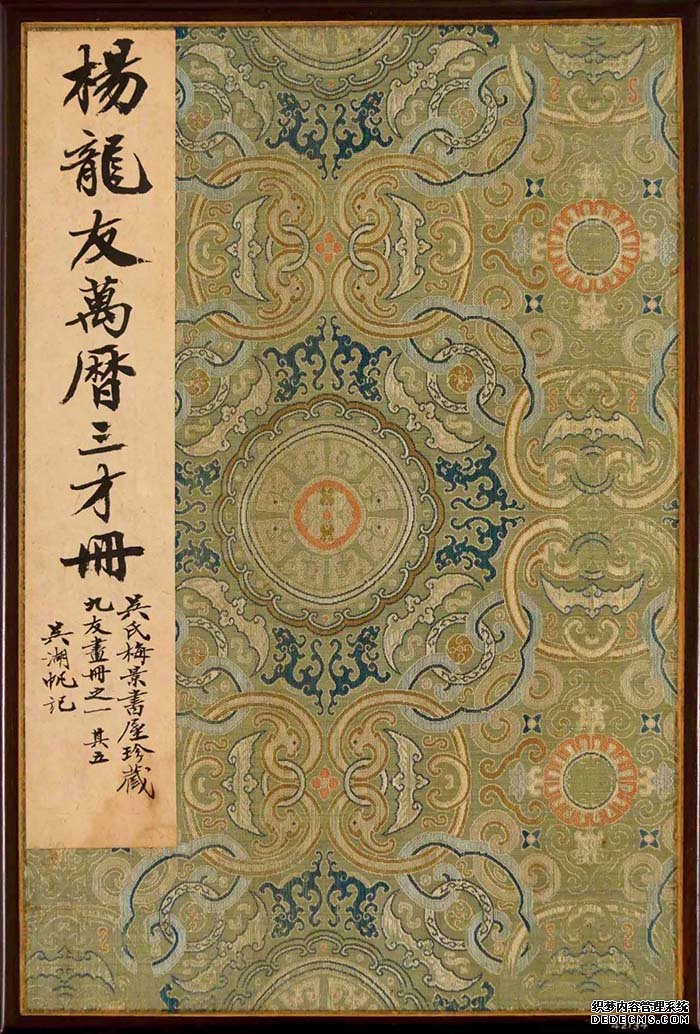 楊龍友萬曆三才冊
吴氏梅景書屋珍藏
九友畫冊之一 其五
吴湖帆记
织梦内容管理系统
DEDECMS.COM